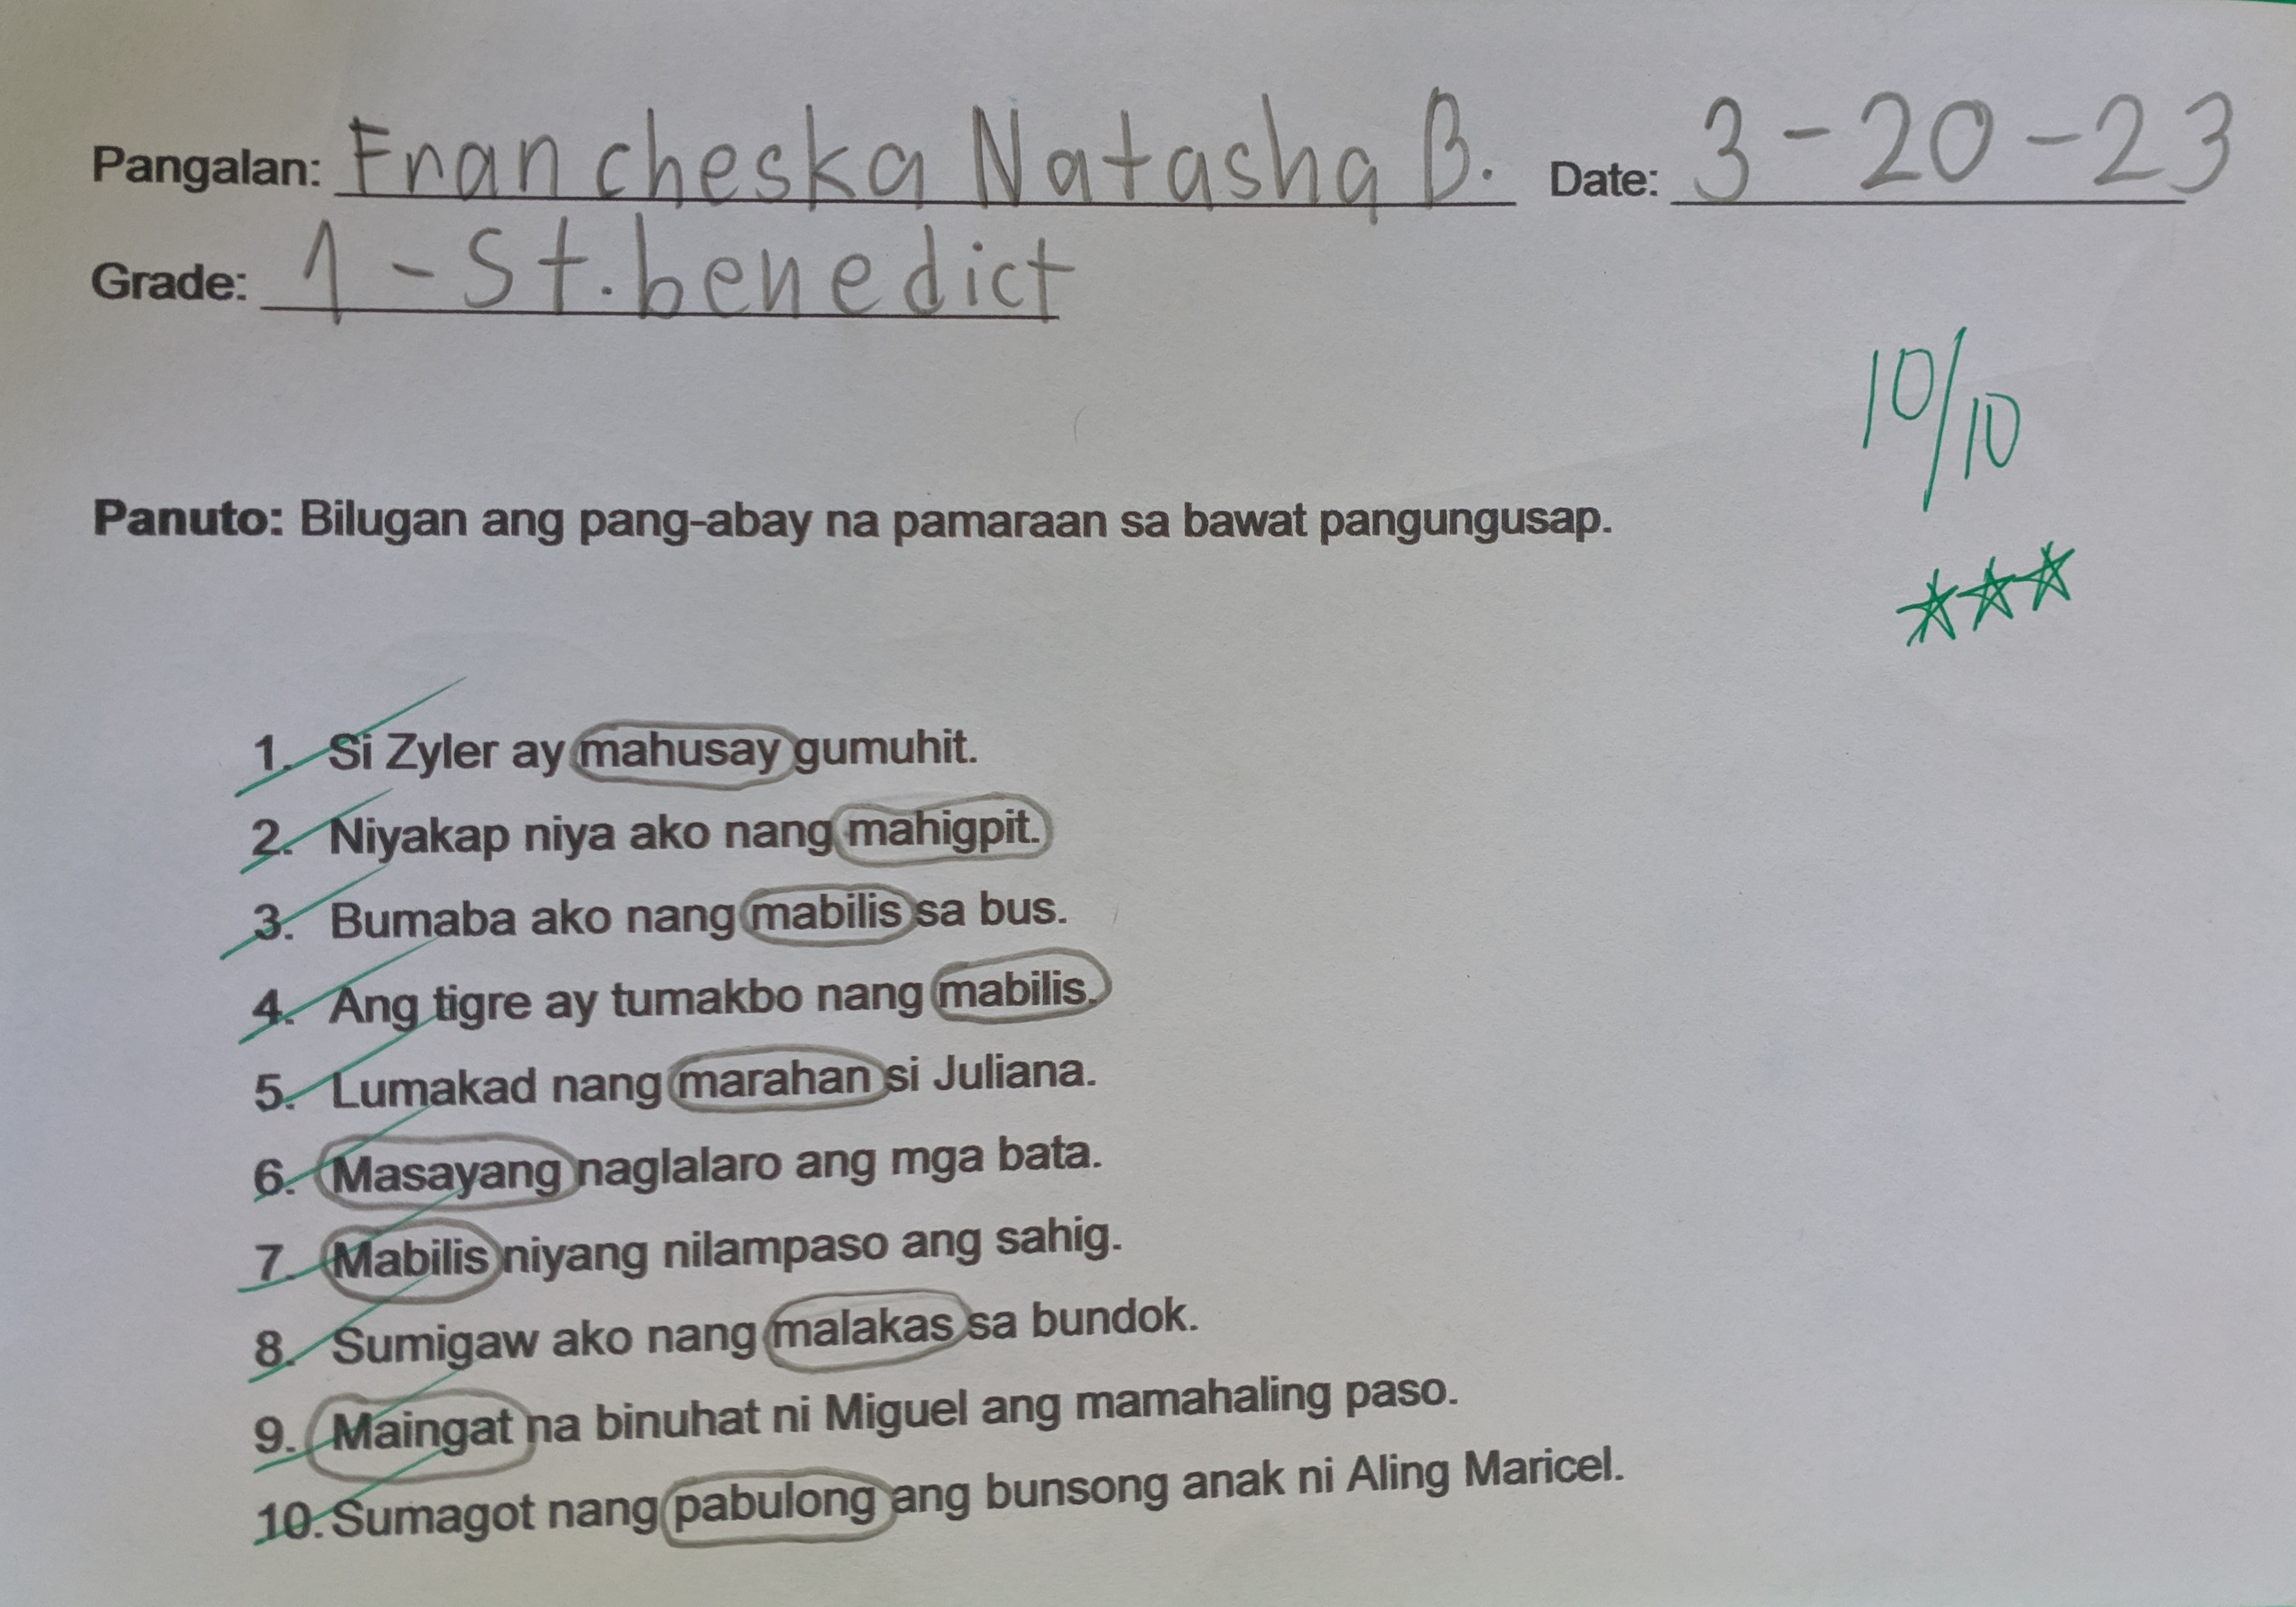 Pangalan: Francheska Natasha B. Date: 3-20-23
Grade: 1-St.benedict
10/10
Panuto: Bilugan ang pang-abay na pamaraan sa bawat pangungusap.
1. Si Zyler ay mahusay gumuhit.
2. Niyakap niya ako nang mahigpit.
3. Bumaba ako nang mabilis sa bus.
4. Ang tigre ay tumakbo nang mabilis.
5. Lumakad nang marahan si Juliana.
6. Masayang naglalaro ang mga bata.
7. Mabilis niyang nilampaso ang sahig.
8. Sumigaw ako nang malakas sa bundok.
9. Maingat na binuhat ni Miguel ang mamahaling paso.
10. Sumagot nang pabulong ang bunsong anak ni Aling Maricel.